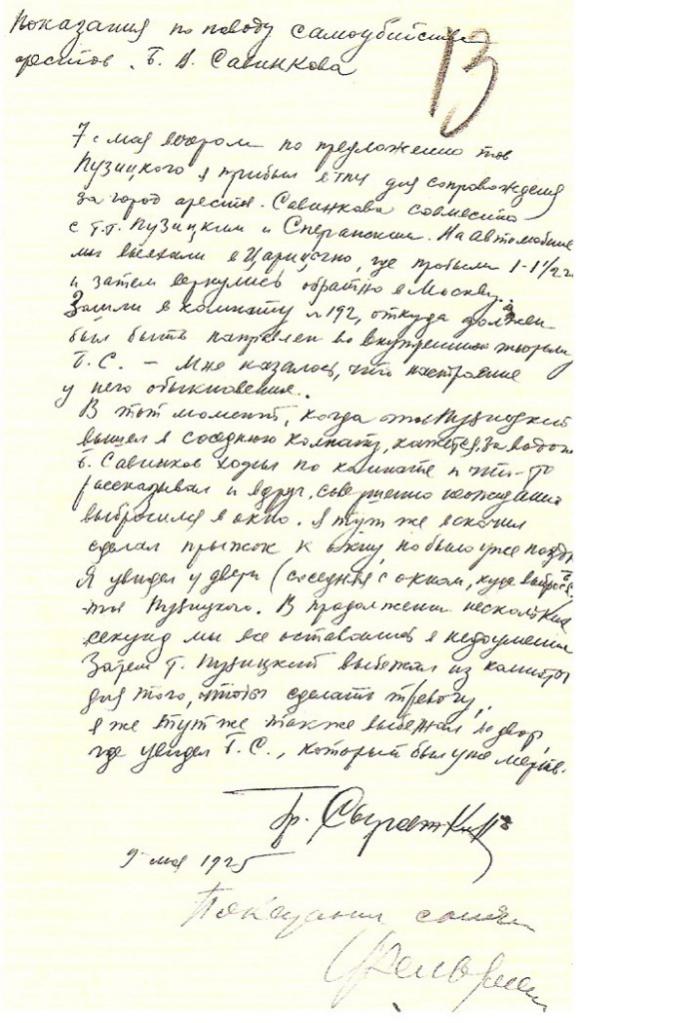 Показания по поводу самоубийства
арестов. Б. В. Савинкова
13
7 с мая вечером по предложению тов
Пузицкого я прибыл в ГПУ для сопровождения
за город арестов. Савинкова совместно
с т.т. Пузицким и Сперанским. На автомобиле
мы выехали в Царицыно, где пробыли 1-1½ г
и затем вернулись обратно в Москву.
Зашли в комнату № 192, откуда должен
был быть направлен во внутреннюю тюрьму
Б. С. – Мне казалось, что настроение
у него обыкновенное.
В тот момент, когда тов Пузицкий
вышел в соседнюю комнату, кажется, за водой
Б. Савинков ходил по комнате и что-то
рассказывал и вдруг, совершенно неожиданно
выбросился в окно. Я тут же вскочил
сделал прыжок к окну, но было уже поздн
Я увидел у двери (соседняя с окном, куда выброс Б.С.
тов Пузицкого. В продолжении нескольких
секунд мы все оставались в недоумении
Затем т. Пузицкий выбежал из комнаты
для того, чтобы сделать тревогу,
я же тут же также выбежал во двор
где увидел Б. С., который был уже мертв.
Гр. Сыроежкин
9 мая 1925
Показания